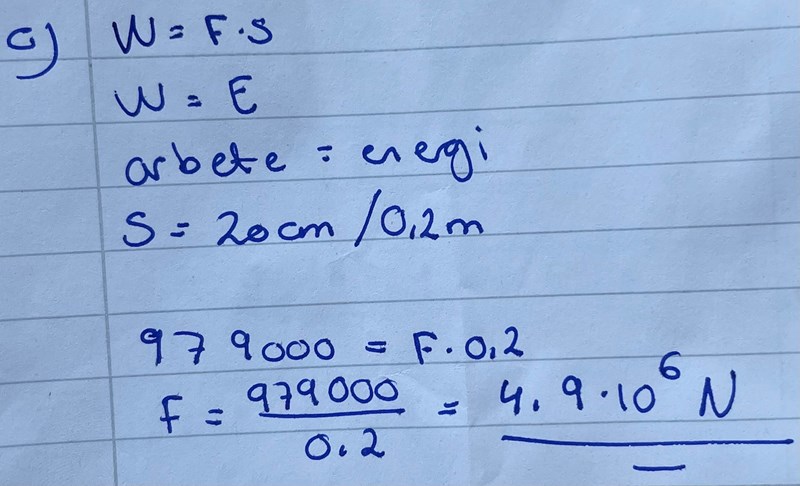 c) W = F·s
W = E
arbete = energi
S = 20cm /0,2m
979000 = F·0,2
F = 979000/0.2 = 4.9·10⁶ N